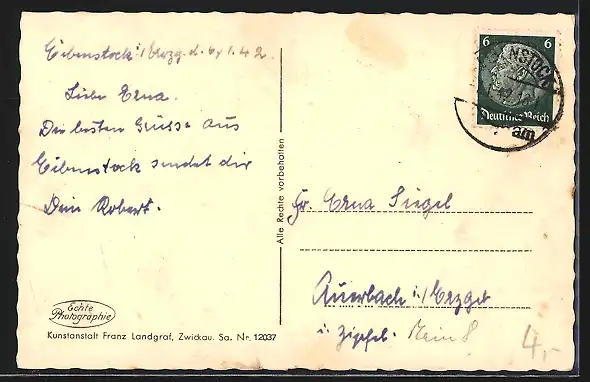 Eibenstock i/Erzg. d. 6/1.42.
Liebe Erna.
Die besten Grüsse aus
Eibenstock sendet dir
Dein Robert.
Echte
Photographie
Kunstanstalt Franz Landgraf, Zwickau. Sa. Nr. 12037
Alle Rechte vorbehalten
6 6
Deutsches Reich
NSTOCK
am
Fr. Erna Siegel
Auerbach i/Erzgeb
i. Zipfel.
4,-